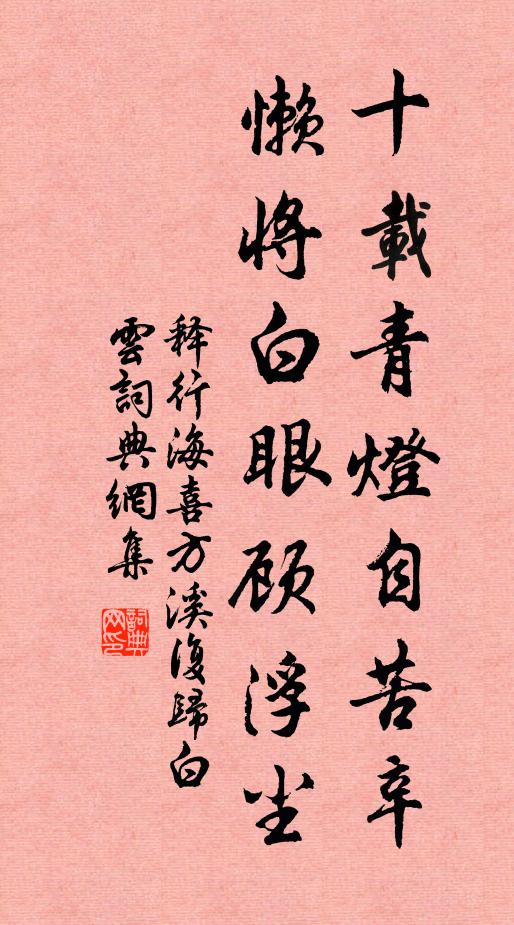 十載青燈自苦辛
懒將白眼顾浮尘
释行海喜方溪復歸白
雲詞典網集
詞典网印